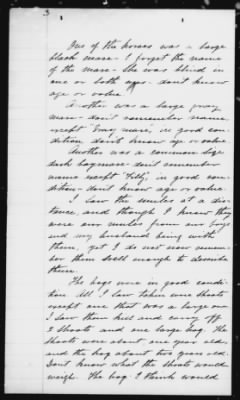 3
One of the horses was a large
black mare - I forget the name
of the mare - She was blind in
one or both eyes - don't know
age or value
Another was a large gray
mare - don't remember name
except "Gray mare, in good con-
dition, don't know age or value
Another was a common size
dark bay mare - don't remember
name except "Filly", in good con-
dition - don't know age or value.
I saw the mules at a dis-
tance, and though I knew they
were our mules from our
and my husband being with
them, yet I do not now remem-
ber them well enough to describe
them.
The hogs were in good condi-
tion All I saw taken were shoats
except one that was a large one
I saw them kill and carry off
2 shoats and one large hog. The
shoats were about one year old,
and the hog about two years old.
Don't know what the shoats would
weigh. The hog I think would